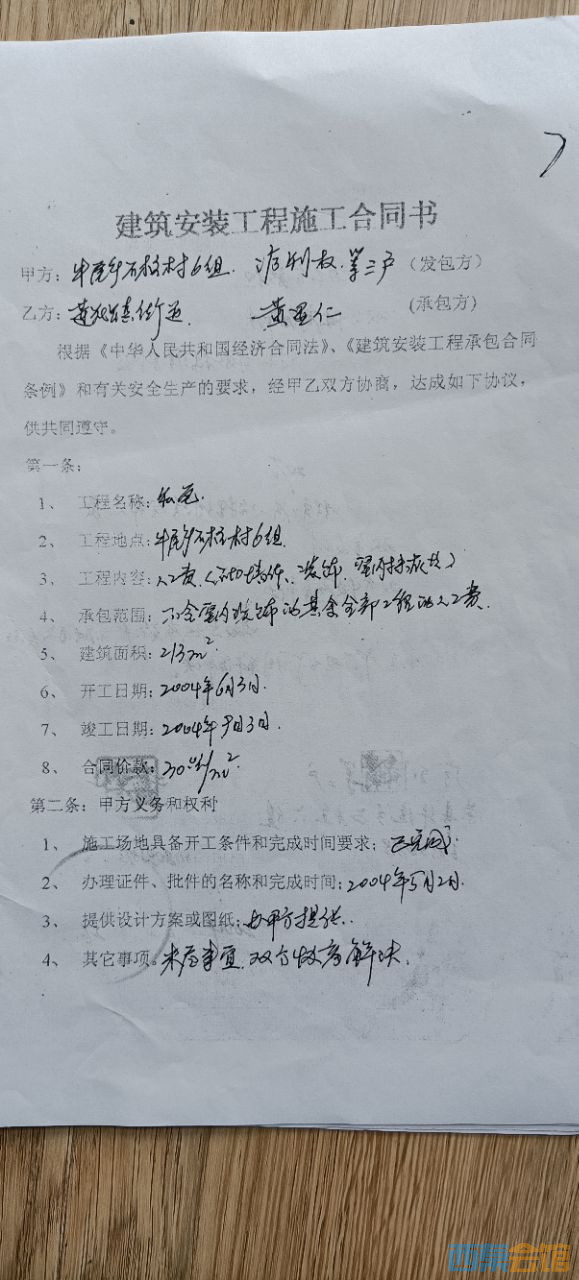 建筑安装工程施工合同书
甲方：石柱村6组 （发包方）
乙方：黄 仁 （承包方）
根据《中华人民共和国经济合同法》、《建筑安装工程承包合同
条例》和有关安全生产的要求，经甲乙双方协商，达成如下协议，
供共同遵守。
第一条：
1、 工程名称：
2、 工程地点：石柱村6组
3、 工程内容：人工费
4、 承包范围：不含室内装饰的其余全部工程的人工费
5、 建筑面积：213m²
6、 开工日期：2004年6月3日
7、 竣工日期：2004年9月3日
8、 合同价款：/m²
第二条：甲方义务和权利
1、 施工场地具备开工条件和完成时间要求：已完成
2、 办理证件、批件的名称和完成时间：2004年5月2日
3、 提供设计方案或图纸：由甲方提供
4、 其它事项。未尽事宜，双方协商解决。
西祠会馆